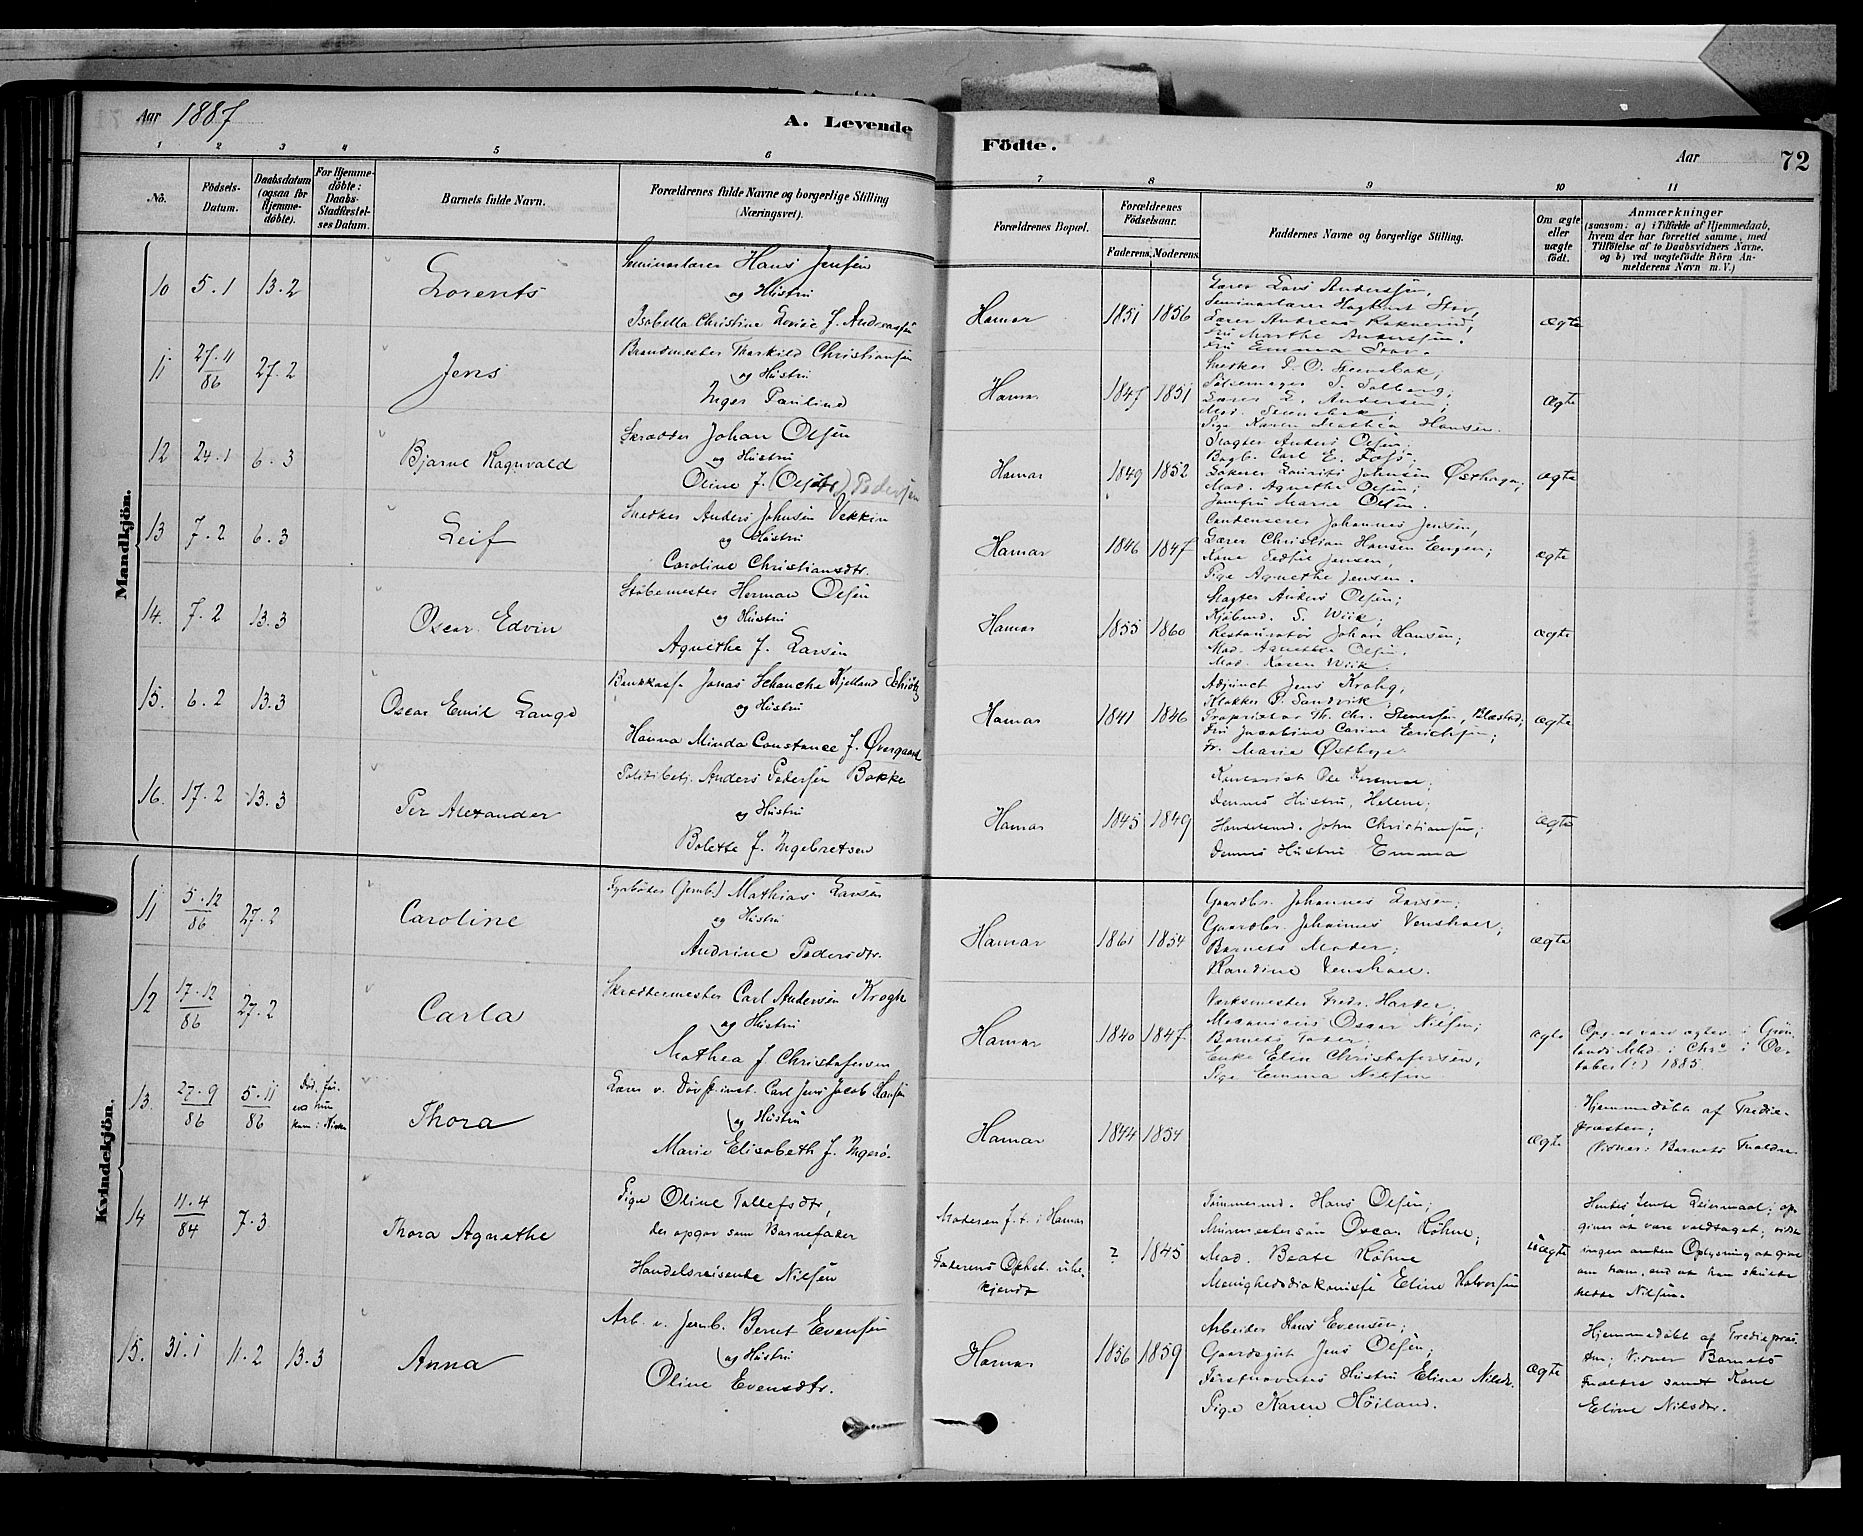 Aar 1887
A. Levende
Födte.
Aar
72
1 2 3 4 5 6
7 8 9 10 11
No.
Födsels-
Datum.
Daabsdatum
(ogsaa for
Hjemme-
döbte).
For Hjemme-
döbte:
Daabs-
Stadfæstel-
ses Datum.
Barnets fulde Navn.
Forældrenes fulde Navne og borgerlige Stilling
(Næringsvei).
Forældrenes Bopæl.
Forældrenes
Födselsaar.
Faderens. Moderens.
Faddernes Navne og borgerlige Stilling.
Om ægte
eller
uægte
født.
Anmærkninger
(saasom: a) i Tilfælde af Hjemmedaab,
hvem der har forrettet samme, med
Tilföielse af to Daabsvidners Navne.
og b) ved uægtefödte Börn An-
melderens Navn m. V.)
Mandkjön.
10 5.1 13.2 Lorents
Seminarlærer Hans Jensen
og Hustru
Isabella Christine Lovise f. Andreassen
Hamar 1851 1856
Lærer Lars Anderssen,
Seminarlærer Hagbart Stov,
Lærer Andreas Raknerud,
Fru Marthe Anderssen.
Fru Emma Stov.
ægte
11 27.11/86 27.2 Jens
Brandmester Thorkild Christiansen
og Hustru
Inger Pauline
Hamar 1847 1851
Snedker P. O. Steensbak,
Lærer L. Andersen;
Mad. Steensbak;
Pige Karen Mathea Hansen.
ægte
12 24.1 6.3 Bjarne Ragnvald
Skrædder Johan Olsen
og Hustru
Oline f. (Olsdtr) Pedersen
Hamar 1849 1852
Slagter Anders Olsen;
Bogb. Carl E. Fossø,
Søkører Laurits Johnsen Østhage;
Mad. Agnethe Olsen;
Jomfru Marie Olsen.
ægte
13 7.2 6.3 Leif
Snedker Anders Johnsen Vekkin
og Hustru
Caroline Christiansdtr.
Hamar 1846 1847
Condenserer Johannes Jensen,
Lærer Christian Hansen Engen;
Kone Jensen,
Pige Agnethe Jensen.
ægte
14. 7.2 13.3 Oscar Edvin
Støbemester Herman Olsen
og Hustru
Agnethe f. Larsen
Hamar 1855 1860
Slagter Anders Olsen;
Kjøbmd. S. Wiik,
Restauratør Johan Hansen;
Mad. Agnethe Olsen.
Mad. Karen Wiik.
ægte
15. 6.2 13.3 Oscar Emil Lange
Bankkass. Jonas Schanche Kjelland Schiøtz
og Hustru
Hanna Minda Constance f. Øvergaard
Hamar 1841 1846
Adjunct Jens Krohg,
Klokker P. Sandvik,
Proprietær Th. Chr. Stenersen, Blæstad;
Fru Jacobine Carine Erichsen;
Fr. Marie Østbye.
ægte
16. 17.2 13.3 Per Alexander
Politibetj. Anders Pedersen Bakke
og Hustru
Bolette f. Ingebretsen
Hamar 1845 1849
Dennes Hustru, Helene;
Handelsmd. John Christiansen;
Dennes Hustru Emma
ægte
Kvindekjön.
11 5.12/86 27.2 Caroline
Fyrbøder (Jernb.) Mathias Larsen
og Hustru
Andrine Pedersdtr.
Hamar 1861 1854
Gaardbr. Johannes Larsen;
Gaardbr. Johannes Venshoel,
Barnets Moder;
Randine Venshoel.
ægte
12 17.12/86 27.2 Carla
Skræddermester Carl Andersen Krogh
og Hustru
Mathea f. Christofersen
Hamar 1840 1847
Værksmester Fredr. Harder,
Mecanicus Oscar Nilsen;
Barnets Fader;
Enke Elin Christofersen,
Pige Emma Nilsen
ægte
Opg. at være døbt i Grøn
lands Mhd i Chra i Oc-
tober (!) 1885.
13. 27.9/86 5.11/86
Död, før-
end hun
kom i Kirken
Thora
Lærer v. Døvstinst. Carl Jens Jacob Hansen
og Hustru
Marie Elisabeth f. Ingerø.
Hamar 1844 1854
ægte
Hjemmedøbt af Tredie-
præsten;
Vidner: Barnets Forældre
14 11.4/84 7.3 Thora Agnethe
Pige Oline Tollefsdtr,
der opgav som Barnefader
Handelsreisende Nilsen
Moderen f. t. i Hamar
Faderens Ophst. ube-
kjendt
? 1845
Tømmermd. Hans Olsen;
Murmestersøn Oscar Køhne;
Mad. Beate Køhne
Menighedsdiakonisse Eline Halvorsen
uægte
Hendes 1ste Leiermaal; op-
giver at være voldtaget; vidste
ingen anden Oplysning at give
om ham, end at han skulde
hedde Nilsen.
15. 31.1 11.2 13.3 Anna
Arb. v. Jernb. Bernt Evensen
og Hustru
Oline Evensdtr.
Hamar 1856 1859
Arbeider Hans Evensen;
Gaardsgut Jens Olsen;
Førstnævntes Hustru Eline Nilsdr.
Pige Karen Høiland.
ægte
Hjemmedøbt af Trediepræs
ten; Vidner Barnets
Forældre samt Kone
Eline Nilsdtr.